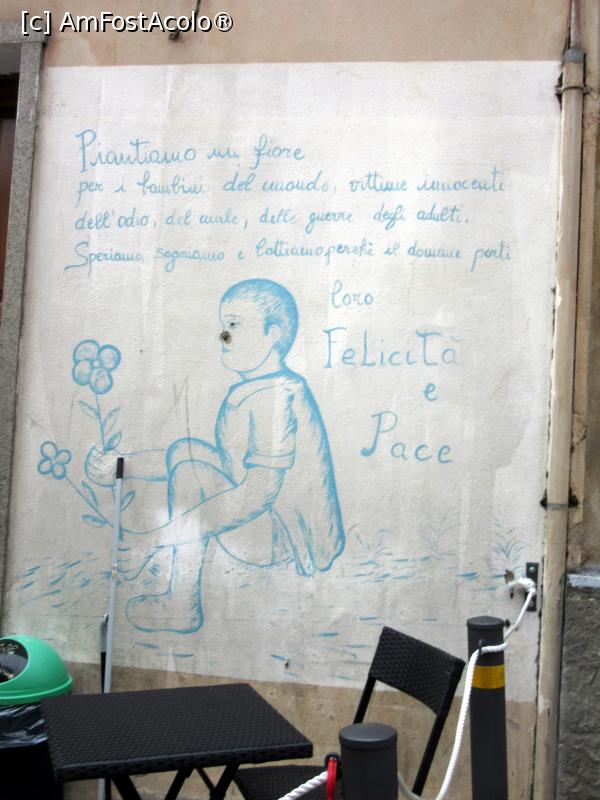 [c] AmFostAcolo®
Piantiamo un fiore
per i bambini del mondo, vittime innocenti
dell'odio, del male, delle guerre degli adulti.
Speriamo, sogniamo e lottiamo perchè il domani porti
loro
Felicità
e
Pace